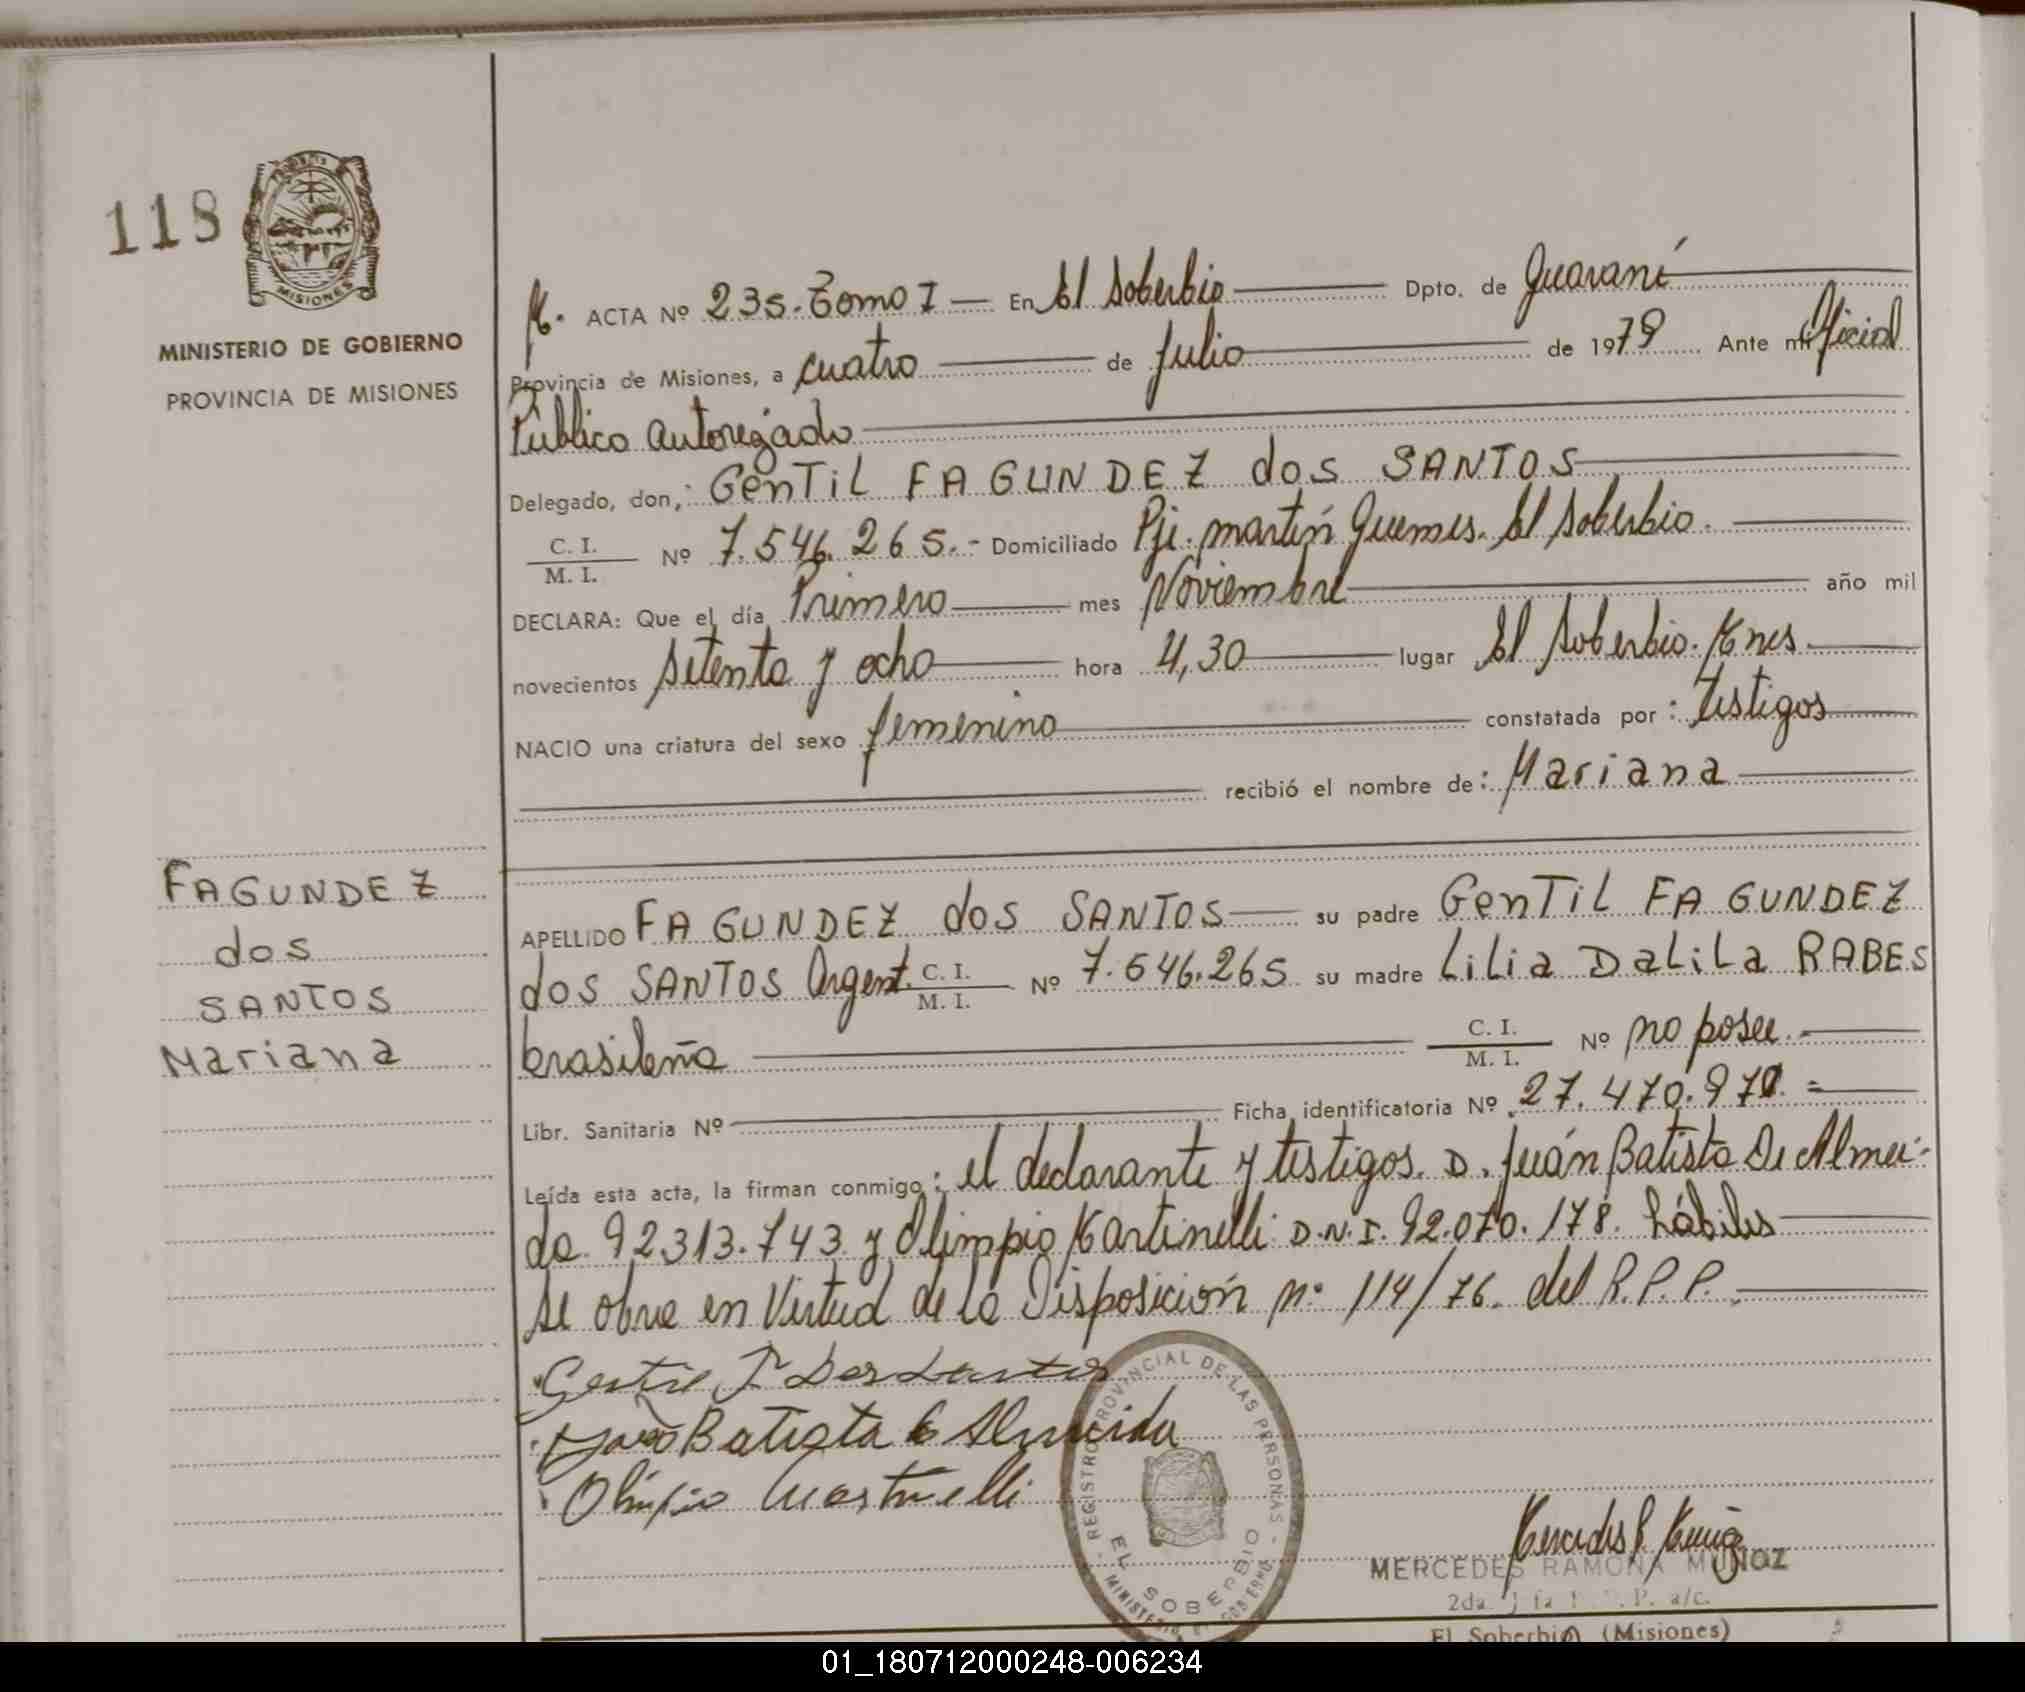 118
MISIONES
MINISTERIO DE GOBIERNO
PROVINCIA DE MISIONES
ACTA Nº 235. Tomo I — En El Soberbio — Dpto. de Guaraní
Provincia de Misiones, a cuatro — de Julio — de 1979 Ante mí Oficial
Público Autorizado
Delegado, don, GenTiL FAGUNDEZ dos SANTOS
C. I. / M. I. Nº 7.546.265.- Domiciliado Pje. martín Guemes. El Soberbio.
DECLARA: Que el día Primero — mes Noviembre — año mil
novecientos setenta y ocho — hora 4,30 — lugar El Soberbio. Mnes
NACIO una criatura del sexo femenino — constatada por: Testigos
recibió el nombre de: Mariana
FAGUNDEZ
dos
SANTOS
Mariana
APELLIDO FAGUNDEZ dos SANTOS — su padre GenTiL FAGUNDEZ
dos SANTOS Argent. C. I. / M. I. Nº 7.546.265 su madre LiLia DaLiLa RABES
brasileña — C. I. / M. I. Nº no posee.-
Libr. Sanitaria Nº — Ficha identificatoria Nº 27.470.971.=
Leída esta acta, la firman conmigo: el declarante y testigos. D. Juán Batista De Almei-
da 92.313.743 y Olimpio Martinelli D.N.I. 92.070.178. hábiles
se obra en Virtud de la Disposición nº 114/76. del R.P.P.
Batista Almeida
Olimpio Martinelli
REGISTRO PROVINCIAL DE LAS PERSONAS
EL SOBERBIO
MERCEDES RAMONA MUÑOZ
El Soberbio (Misiones)
01_180712000248-006234